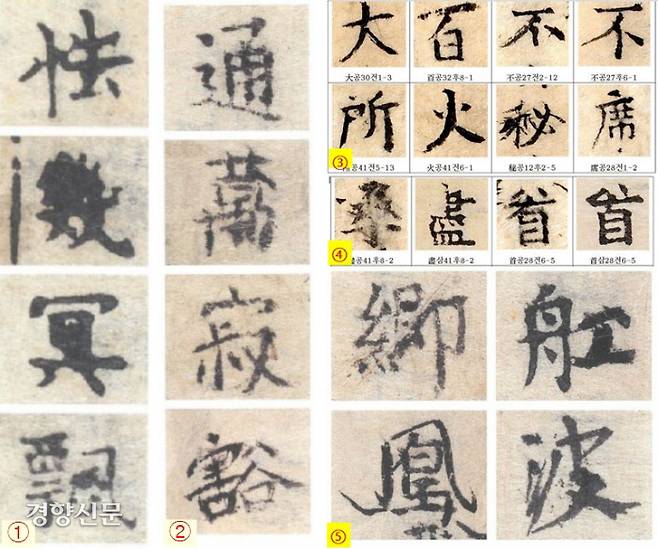 怯
冥
①
경향신문
通
萬
寂
豁
②
大 百 不 不
大공30전1-3 百공32후8-1 不공27전2-12 不공27후6-1
所 火 秘 席
공41전5-13 火공41전6-1 秘공12후2-5 席공28전1-2
③
盡 首 首
공41후8-2 盡삼41후8-2 首공28전6-5 首삼28전6-5
④
鄉 舡
凰 波
⑤